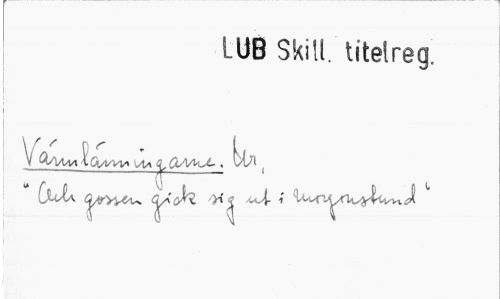 LUB Skill. titelreg.
Värmlänningarne. Ur,
"Och gossen gick sig ut i morgonstund"